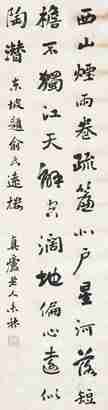 西山煙雨卷疏簾北戶星河落短
檐不獨江天解空闊地偏心遠似
陶潛 東坡題俞氏遠樓